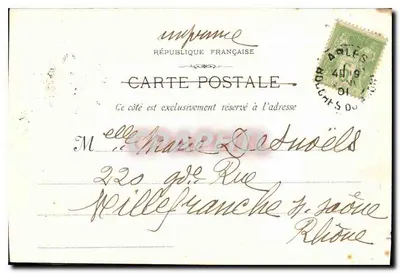 imprimé
RÉPUBLIQUE FRANÇAISE
CARTE POSTALE
Ce côté est exclusivement réservé à l'adresse
Melle Marie Desnoëls
220 gde Rue
Villefranche s/ saône
Rhône
ARLES
01
BOUCHES DU